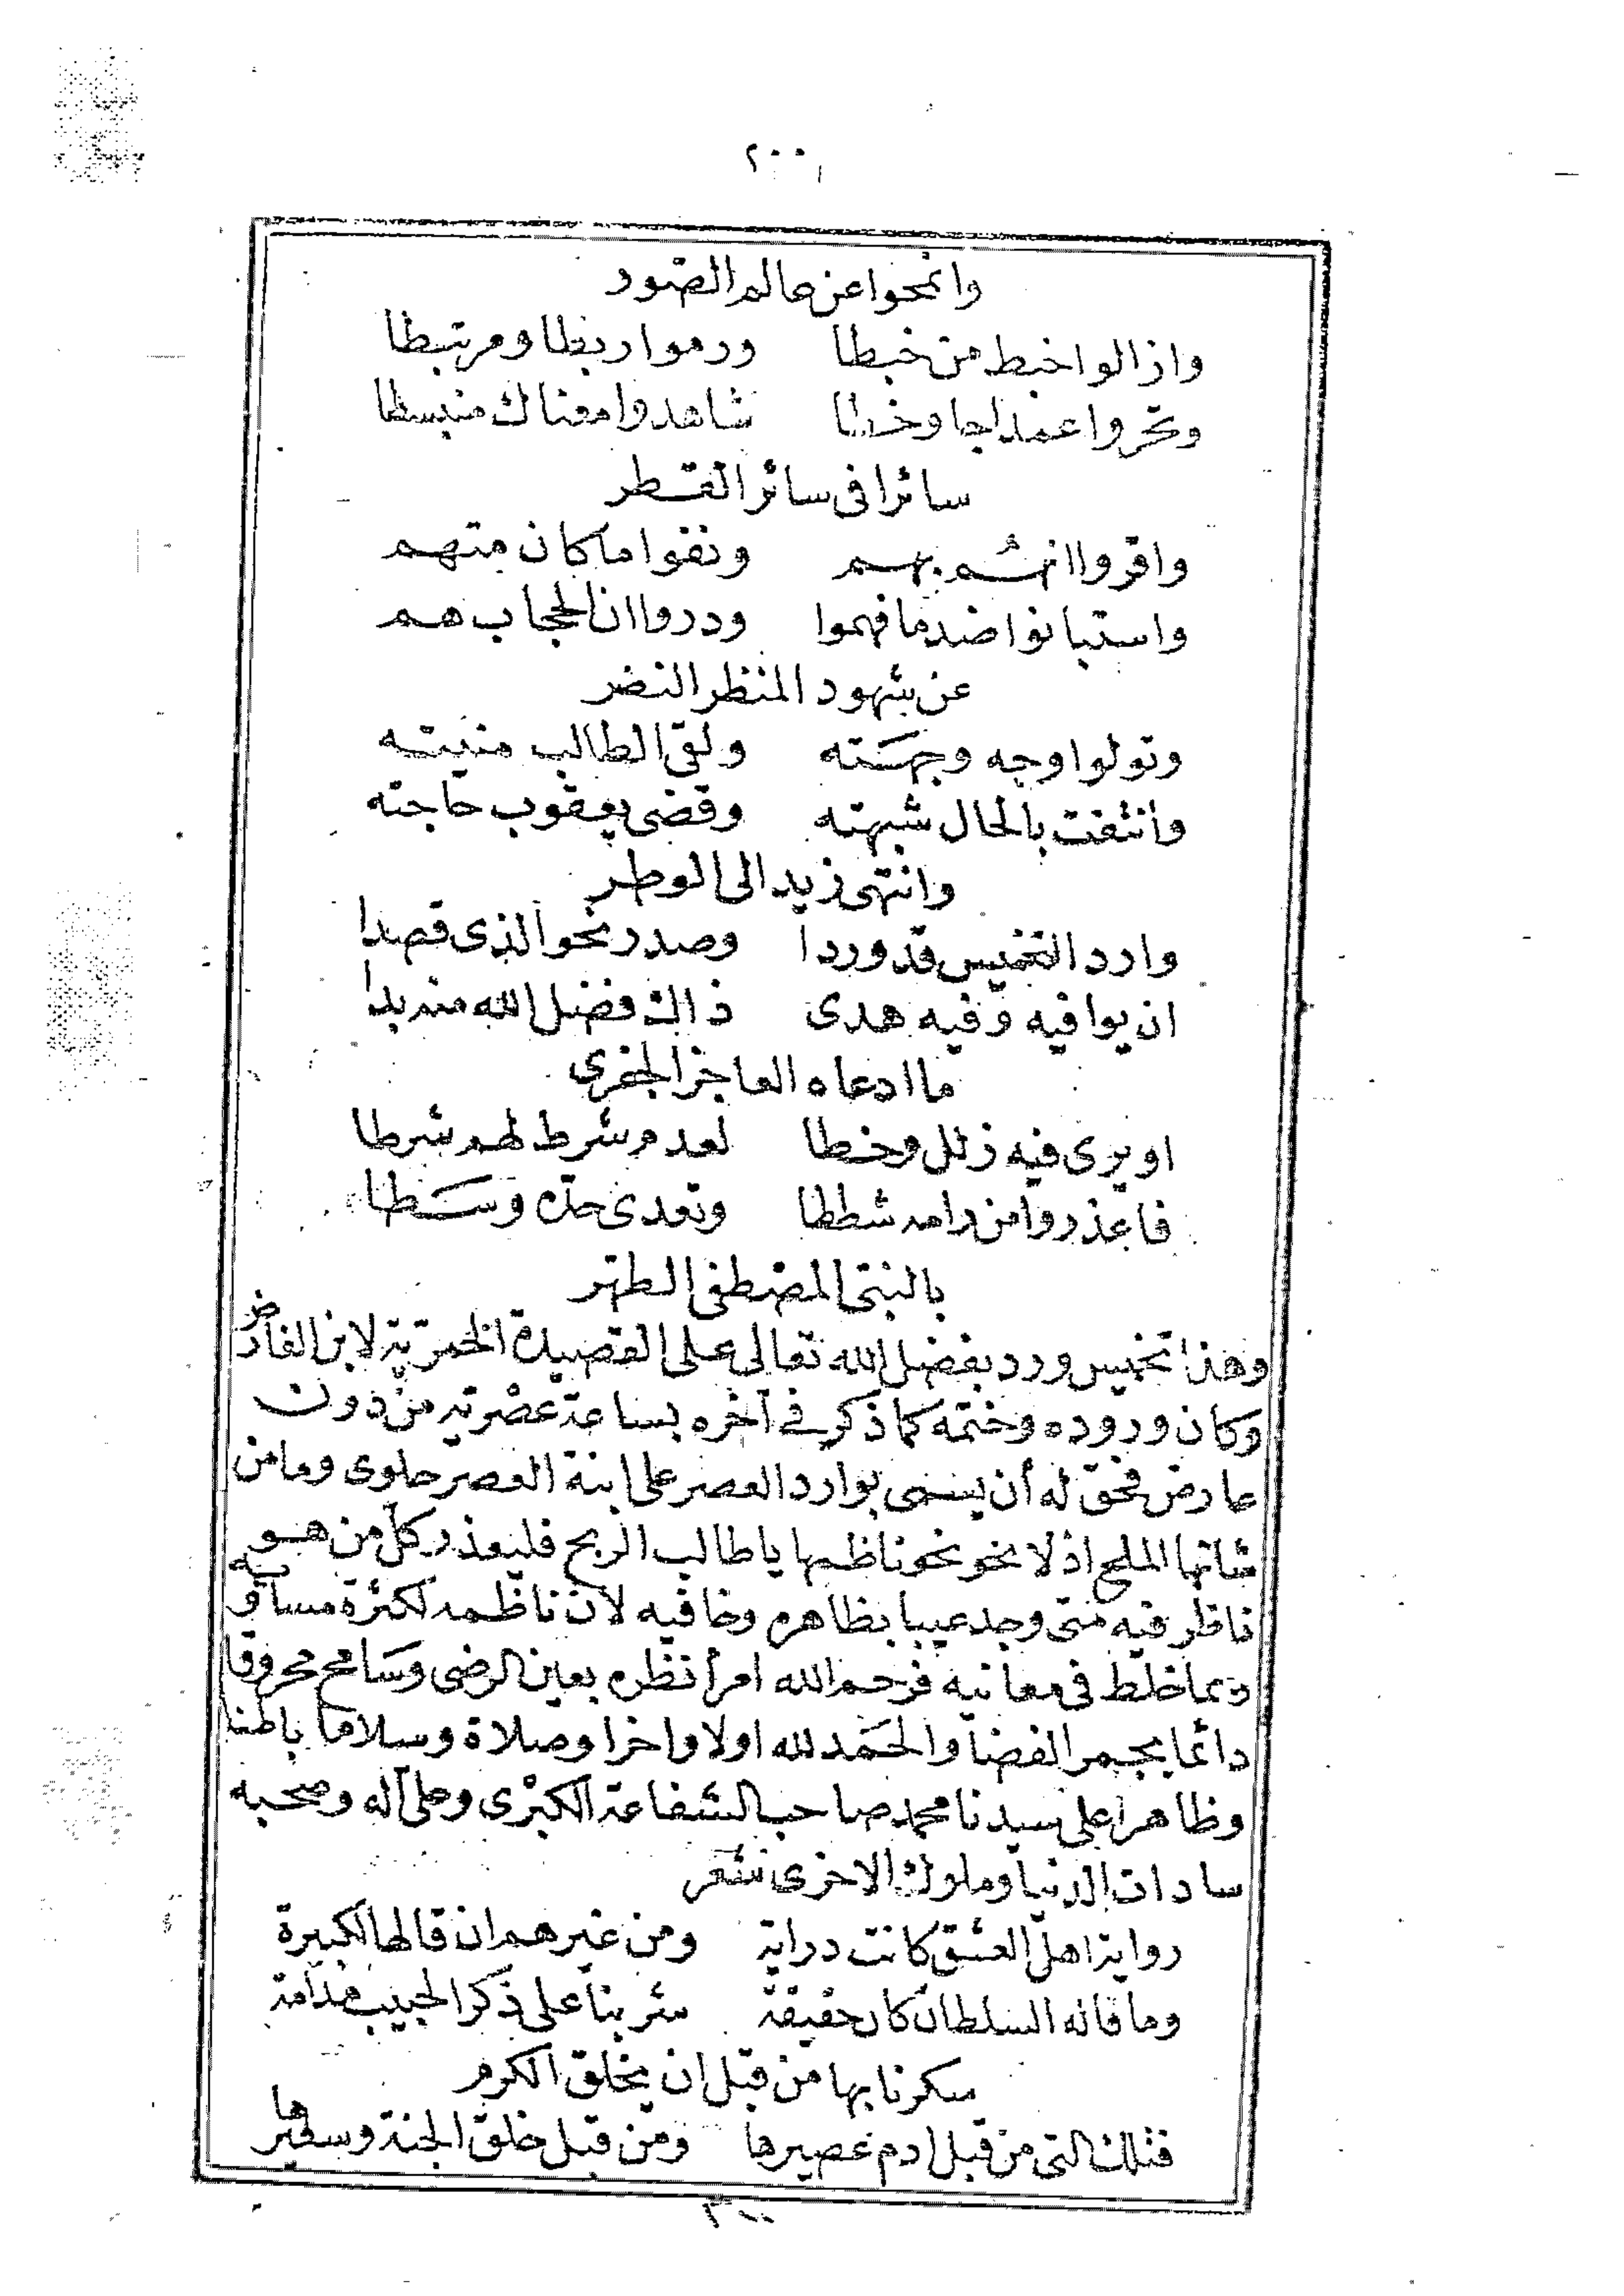 ٢٠٠
وانمحوا عن عالم الصّور
واذالوا خبط من خبطا ورموا ربطا ومرتبطا
وتحروا عمد لجا وخطا شاهدوا معناك منبسطا
سائرا فى سائر القطر
واقروا انهم بهم ونفوا ما كان متهم
واستبانوا ضد ما فهموا ودروا ان الحجاب هم
عن شهود المنظر النضر
وتولوا وجه وجهته ولقى الطالب منيته
وانتفت بالحال شبهته وقضى يعقوب حاجته
وانتهى زيد الى الوطر
وارد التخميس قد وردا وصدر نحو الذى قصدا
ان يوافيه وفيه هدى ذاك فضل الله منه بدا
ما ادعاه العاجز الجفرى
او يرى فيه زلل وخطا لعدم شرط لهم شرطا
فاعذروا من رامه شططا وتعدى حده وسطا
بالنبىّ المصطفى الطهر
وهذا تخميس ورد بفضل الله تعالى على القصيدة الخمرية لابن الفارض
وكان وروده وختمه كما ذكر فى آخره بساعة عصْرية من دون
عارض فحق له أن يسمى بوارد العصر على ابنة العصر حلوى وما من
شانها الملح اذ لا نحو نحو ناظمها يا طالب الربح فليعذر كلّ من هو
ناظر فيه متى وجد عيبا بظاهره وخافيه لان ناظمه لكثرة مساويه
ربما خلط فى معانيه فرحم الله امرأ نظره بعين الرضى وسامح محروقا
دائما بجمر الغضا والحمد لله اولا واخرا وصلاة وسلاما باطنا
وظاهرا على سيدنا محمد صاحب الشفاعة الكبرْى وعلى آله وصحبه
سادات الدنيا وملوك الاخرى شعر
رواية اهل العشق كانت دراية ومن غيرهم ان قالها لكبيرة
وما قاله السلطان كان حقيقة شربنا على ذكر الحبيب مدامة
سكرنا بها من قبل ان يخلق الكرم
فتلك التى من قبل ادم عصيرها ومن قبل خلق الجنة وسفيرها